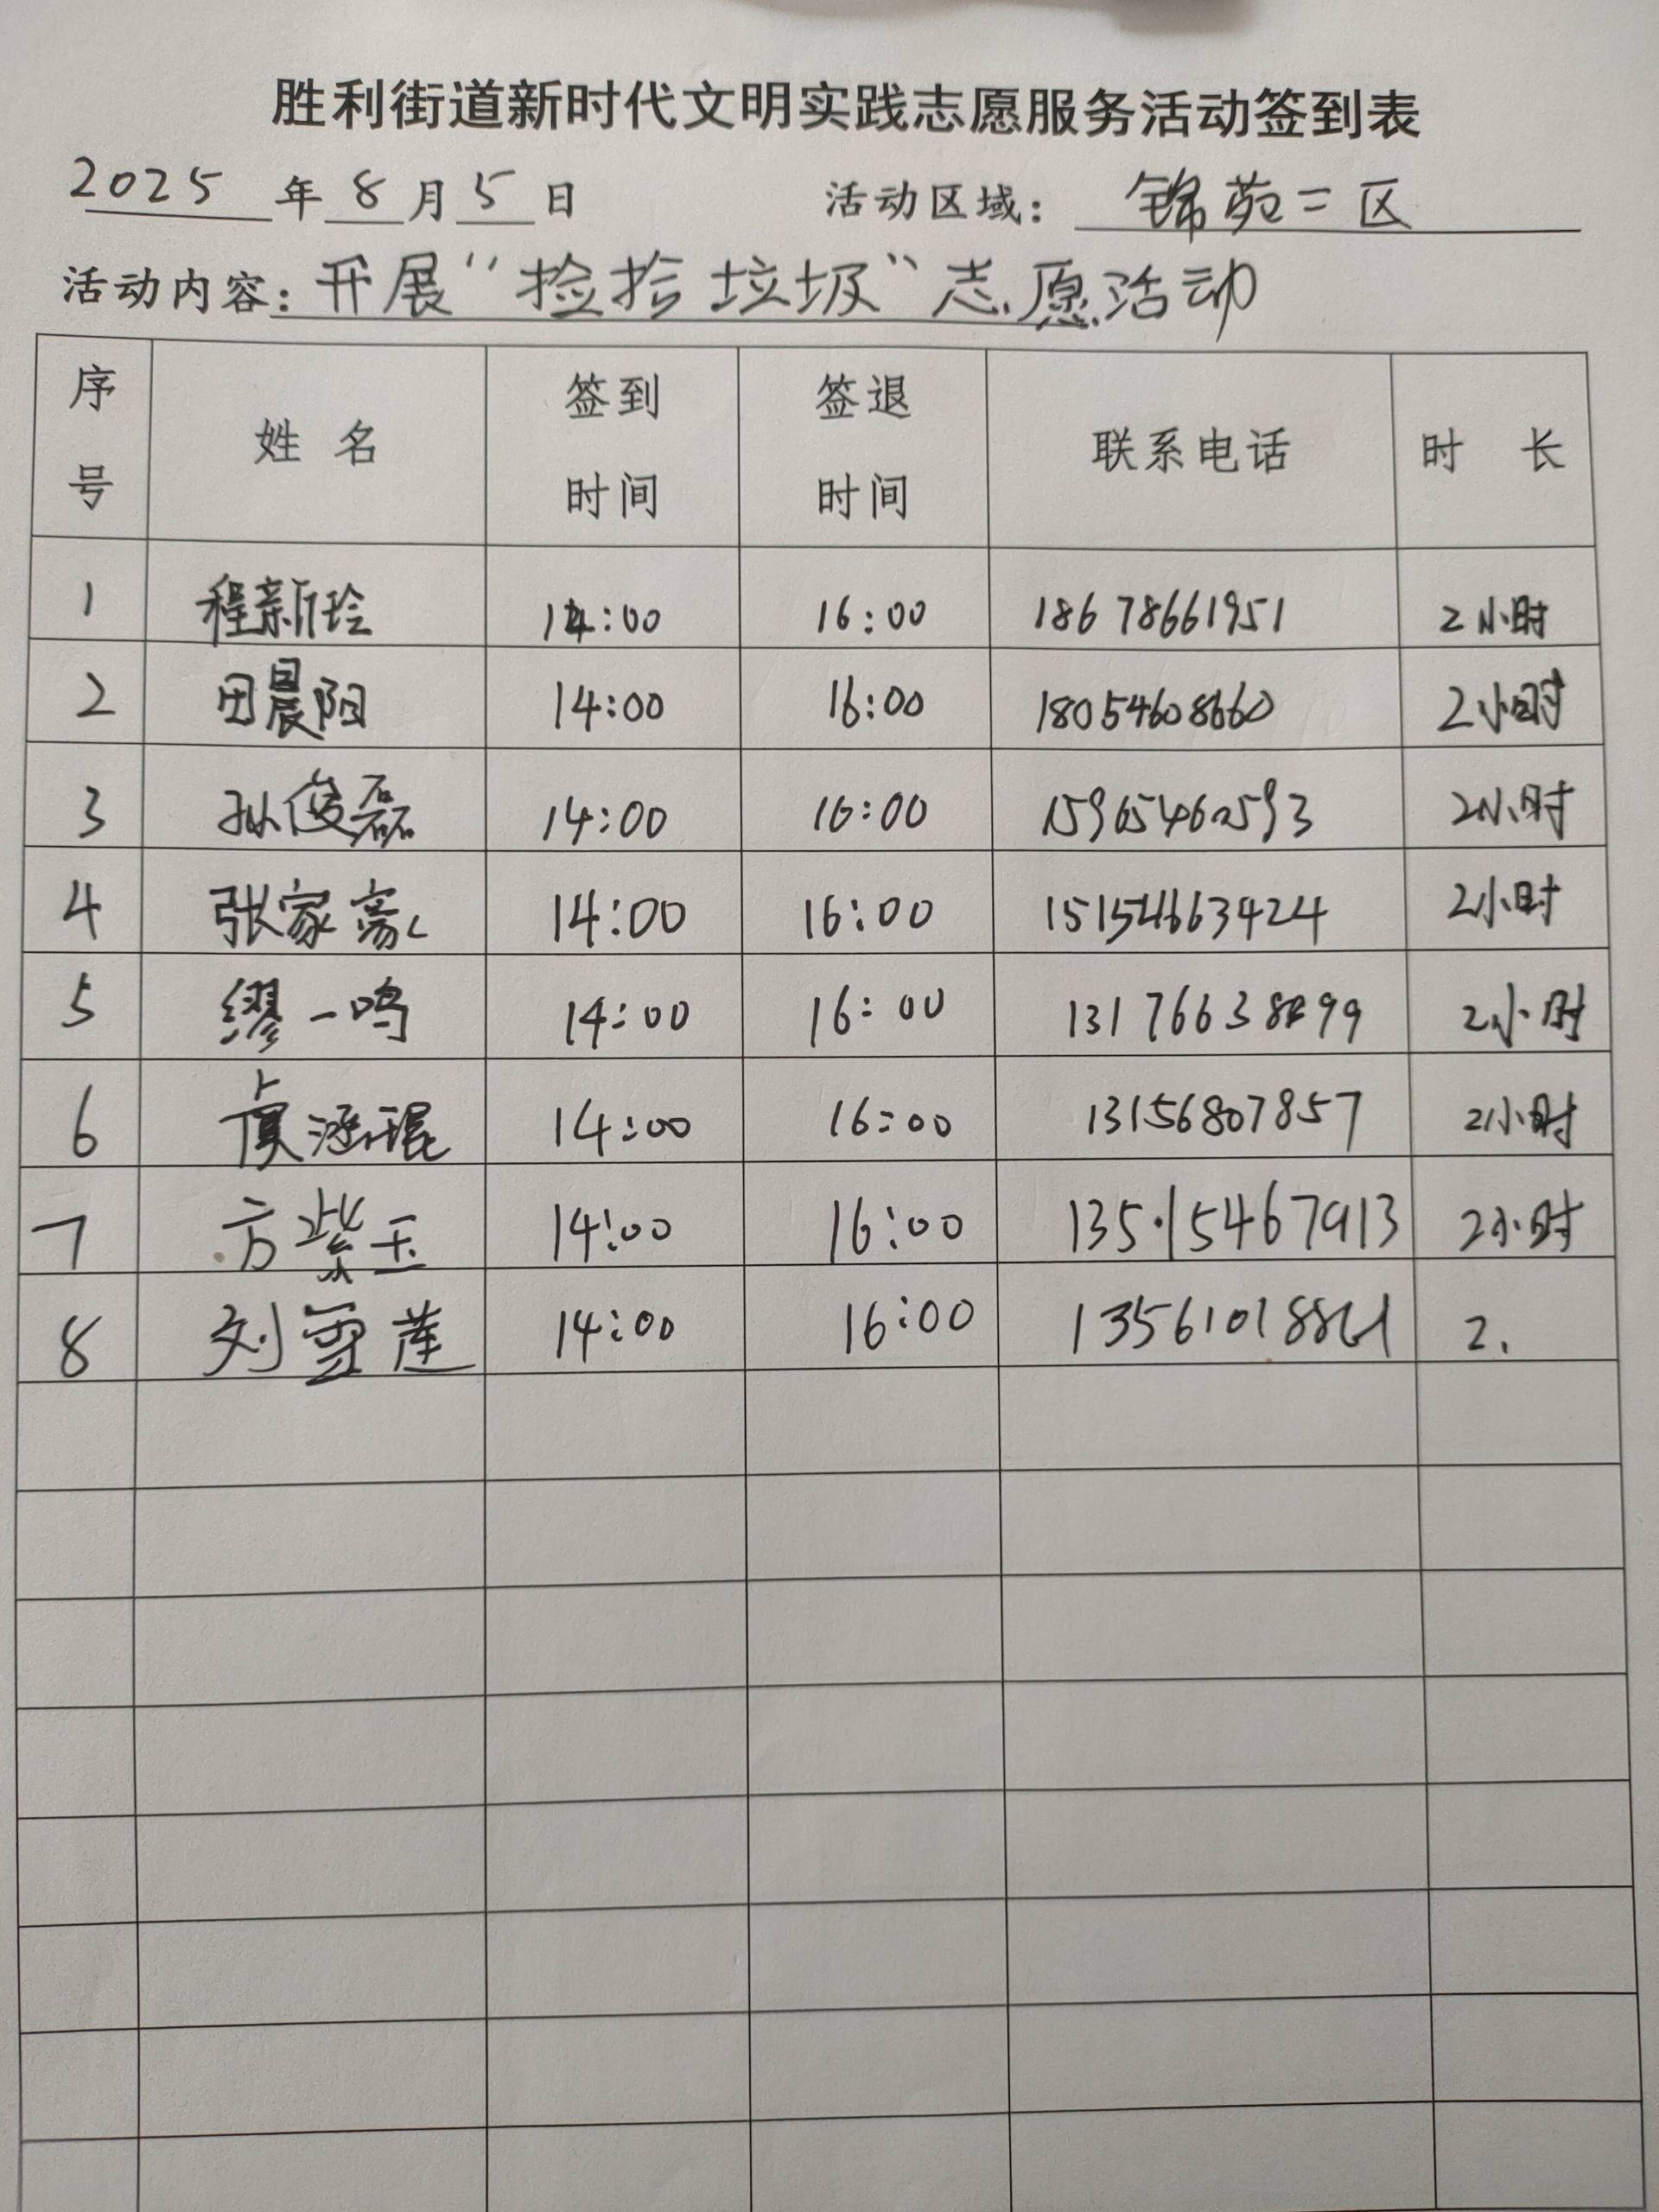 胜利街道新时代文明实践志愿服务活动签到表
2025 年 8 月 5 日 活动区域: 锦苑二区
活动内容: 开展“捡拾垃圾”志愿活动
序号 姓名 签到时间 签退时间 联系电话 时 长
1 程新玲 14:00 16:00 18678661951 2小时
2 田晨阳 14:00 16:00 18054608660 2小时
3 孙俊磊 14:00 16:00 15965460593 2小时
4 张家豪 14:00 16:00 15154663424 2小时
5 缪一鸣 14:00 16:00 2小时
6 14:00 16:00 13156807857 2小时
7 方紫玉 14:00 16:00 135·15467913 2小时
8 刘雪莲 14:00 16:00 2.